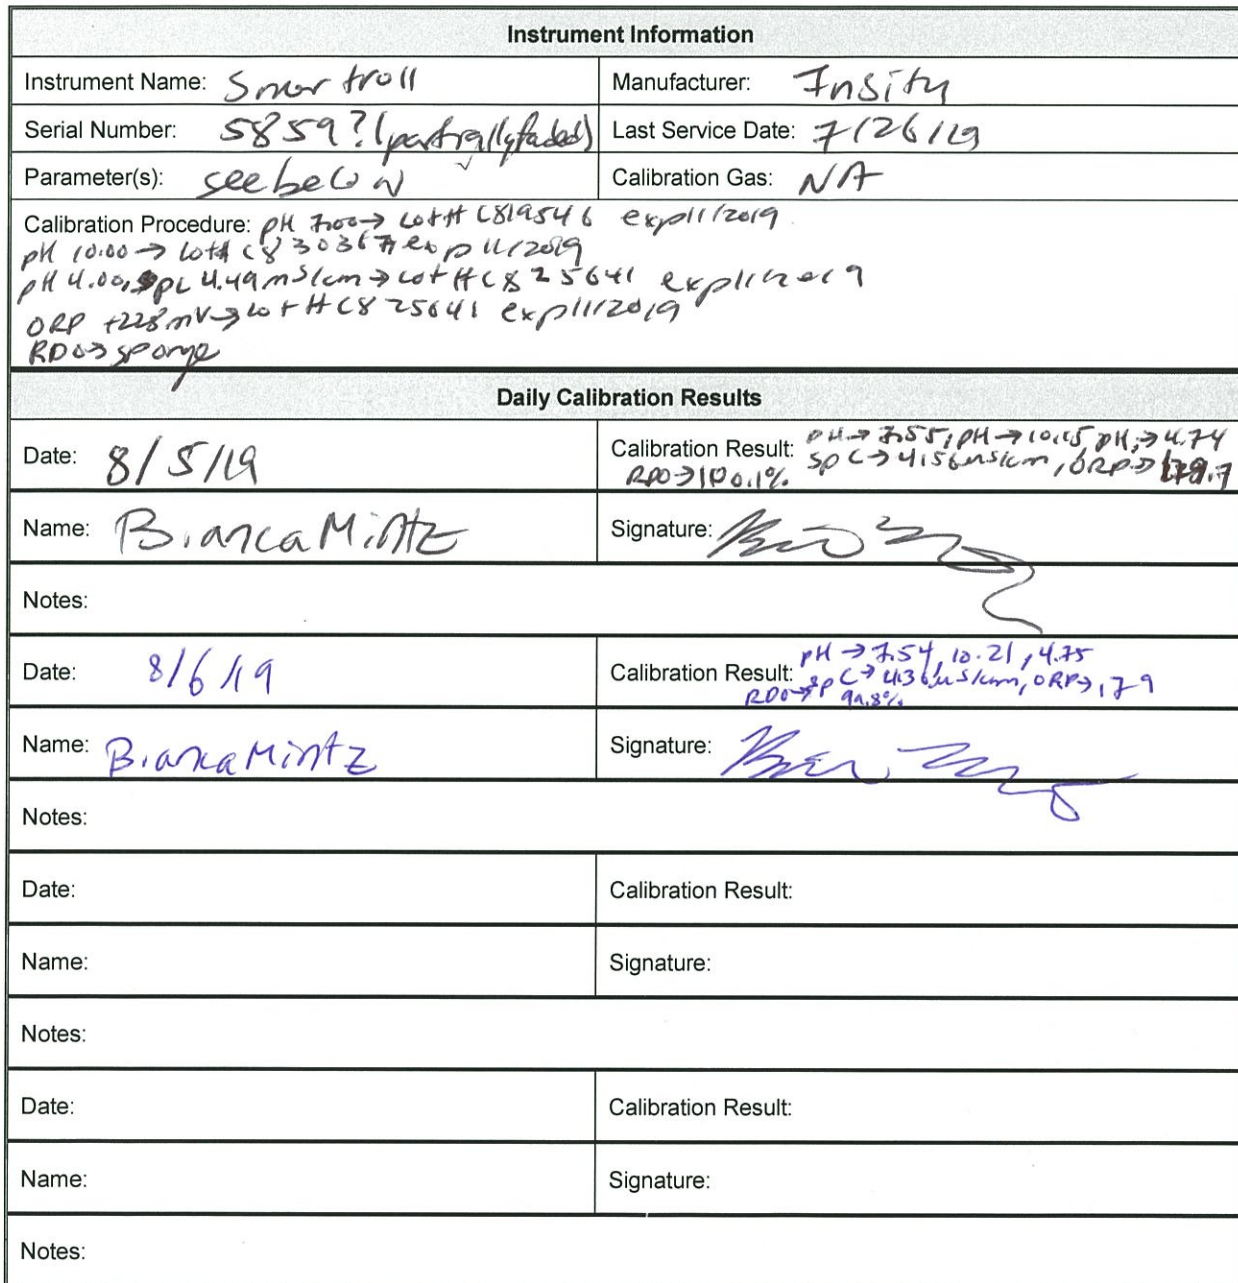 Instrument Information
Instrument Name: Smartroll
Manufacturer: Insity
Serial Number: 5859? (partially faded)
Last Service Date: 7/26/19
Parameter(s): see below
Calibration Gas: NA
Calibration Procedure: pH 7.00→ Lot# C819546 exp 11/2019
pH 10.00 → Lot# C830367 exp 11/2019
pH 4.00, SpC 4.49 mS/cm → Lot# C825641 exp 11/2019
ORP +228 mV → Lot# C825641 exp 11/2019
RDO→ sponge
Daily Calibration Results
Date: 8/5/19
Calibration Result: pH→ 7.55, pH→ 10.15, pH→ 4.74
RDO→ 100.1% SpC→ 4.156 mS/cm, ORP→ 179.7
Name: Bianca Mintz
Signature:
Notes:
Date: 8/6/19
Calibration Result: pH → 7.54, 10.21, 4.75
SpC→ mS/cm, ORP→ 179
RDO→ 99.8%
Name: Bianca Mintz
Signature:
Notes:
Date:
Calibration Result:
Name:
Signature:
Notes:
Date:
Calibration Result:
Name:
Signature:
Notes: